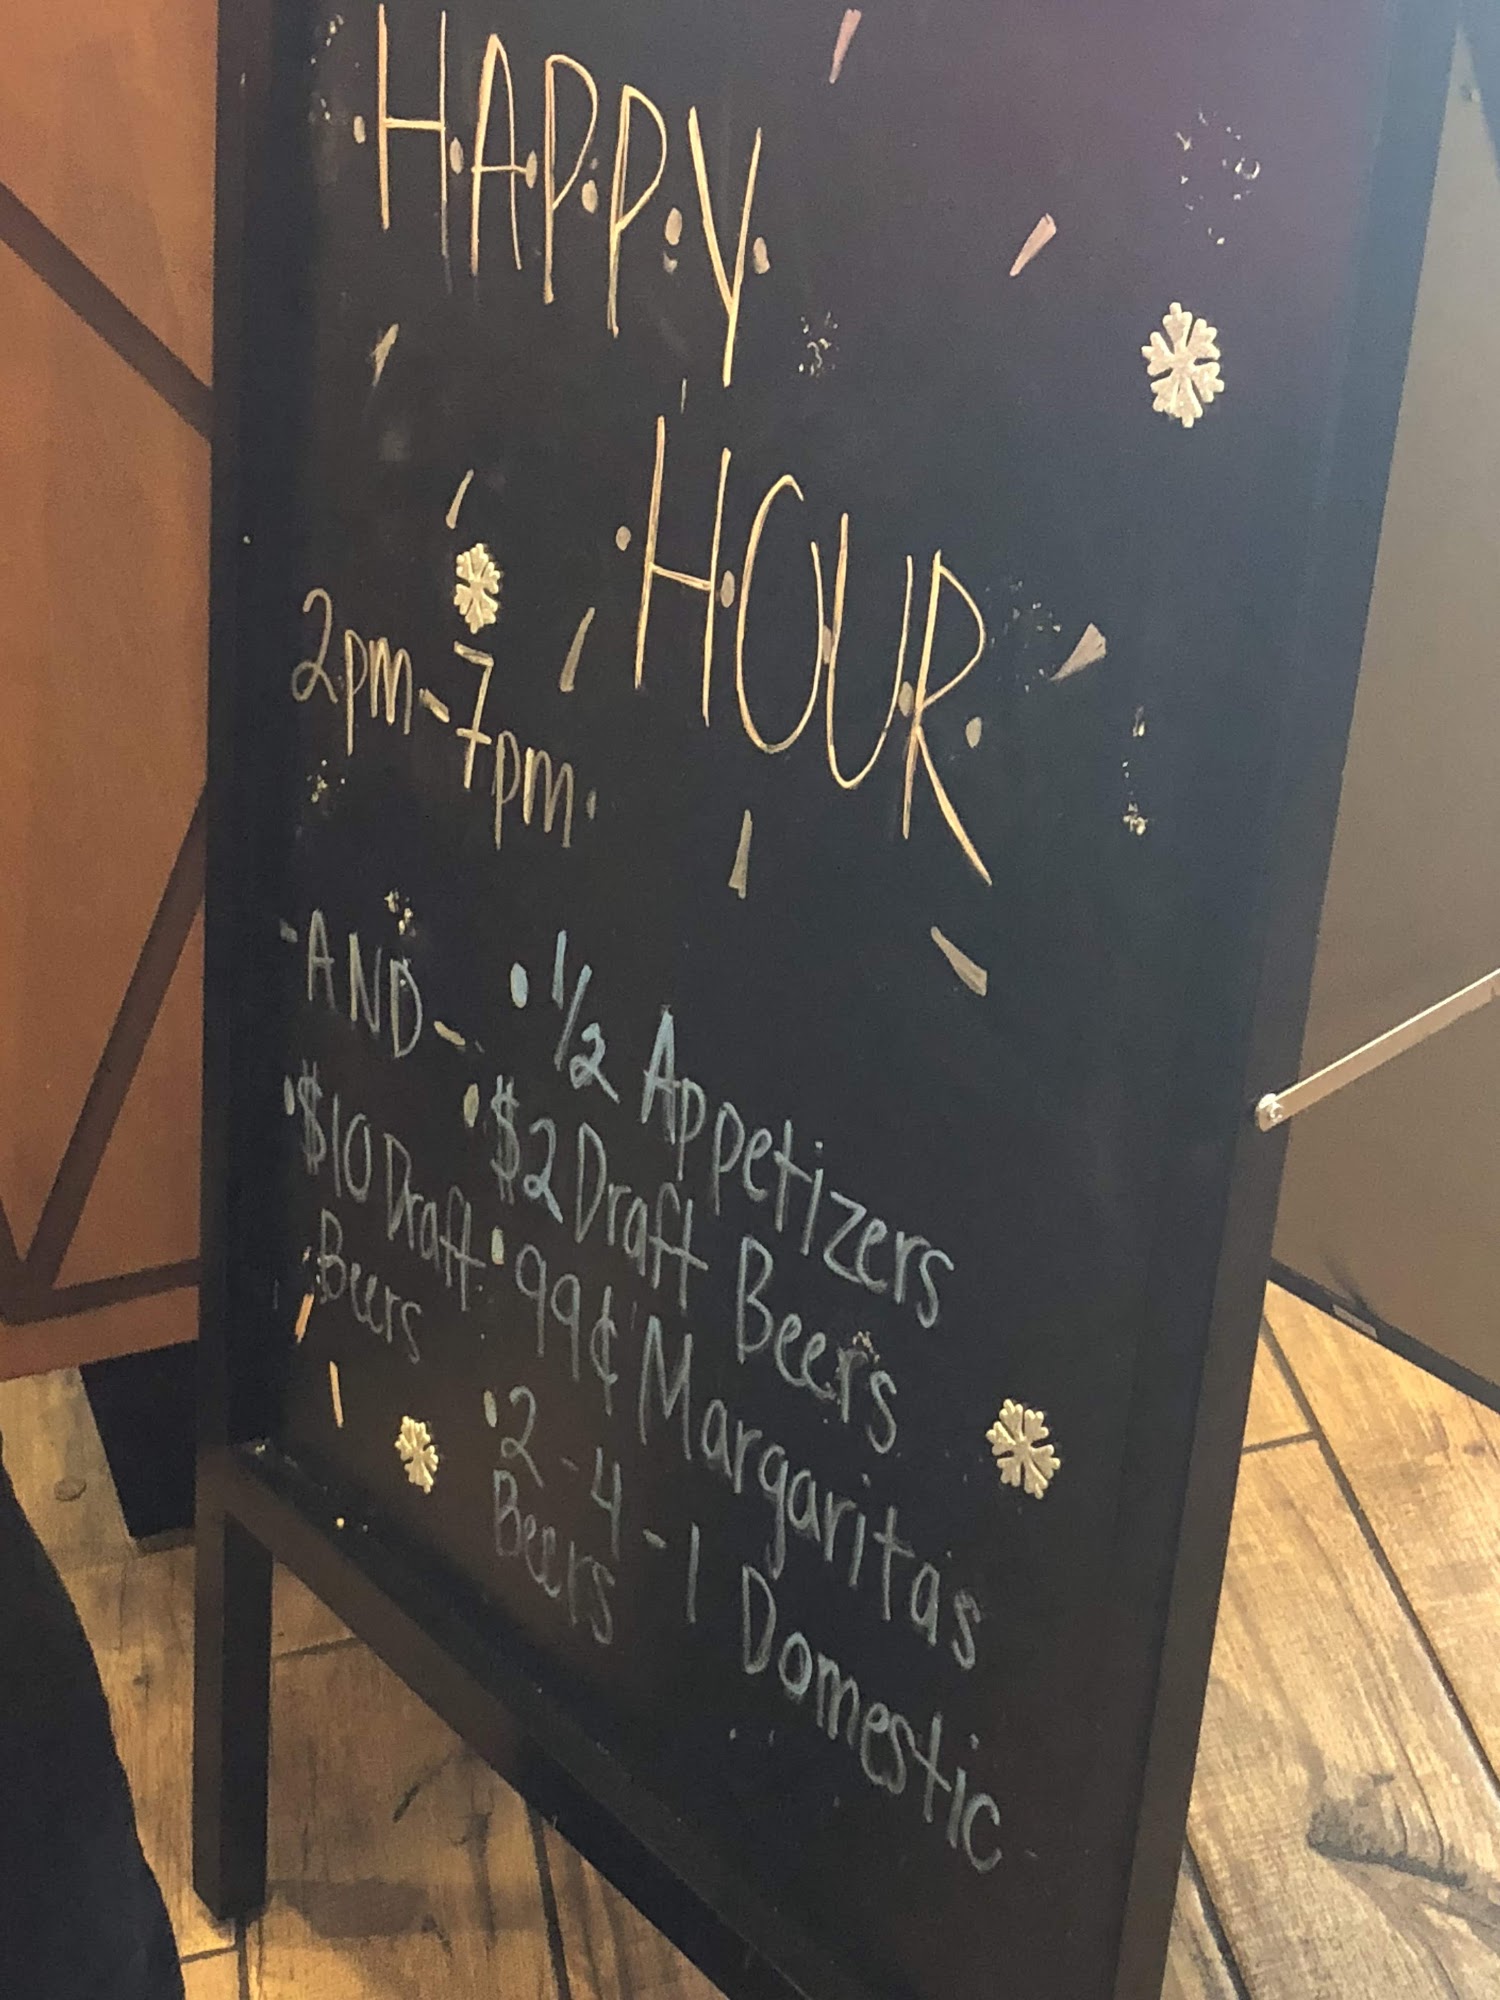 HAPPY
HOUR
2pm-7pm
-AND-
• 1/2 Appetizers
• $2 Draft Beers
• 99¢ Margaritas
• 2-4-1 Domestic
Beers
• $10 Draft
Beers